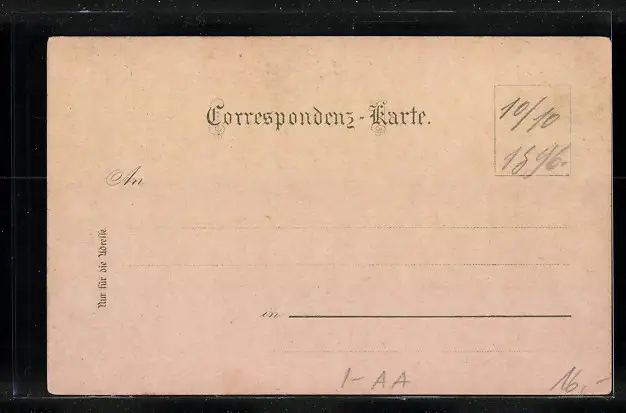 Correspondenz-Karte.
10/10
1896.
An
Nur für die Adresse.
in
I-AA
16,-